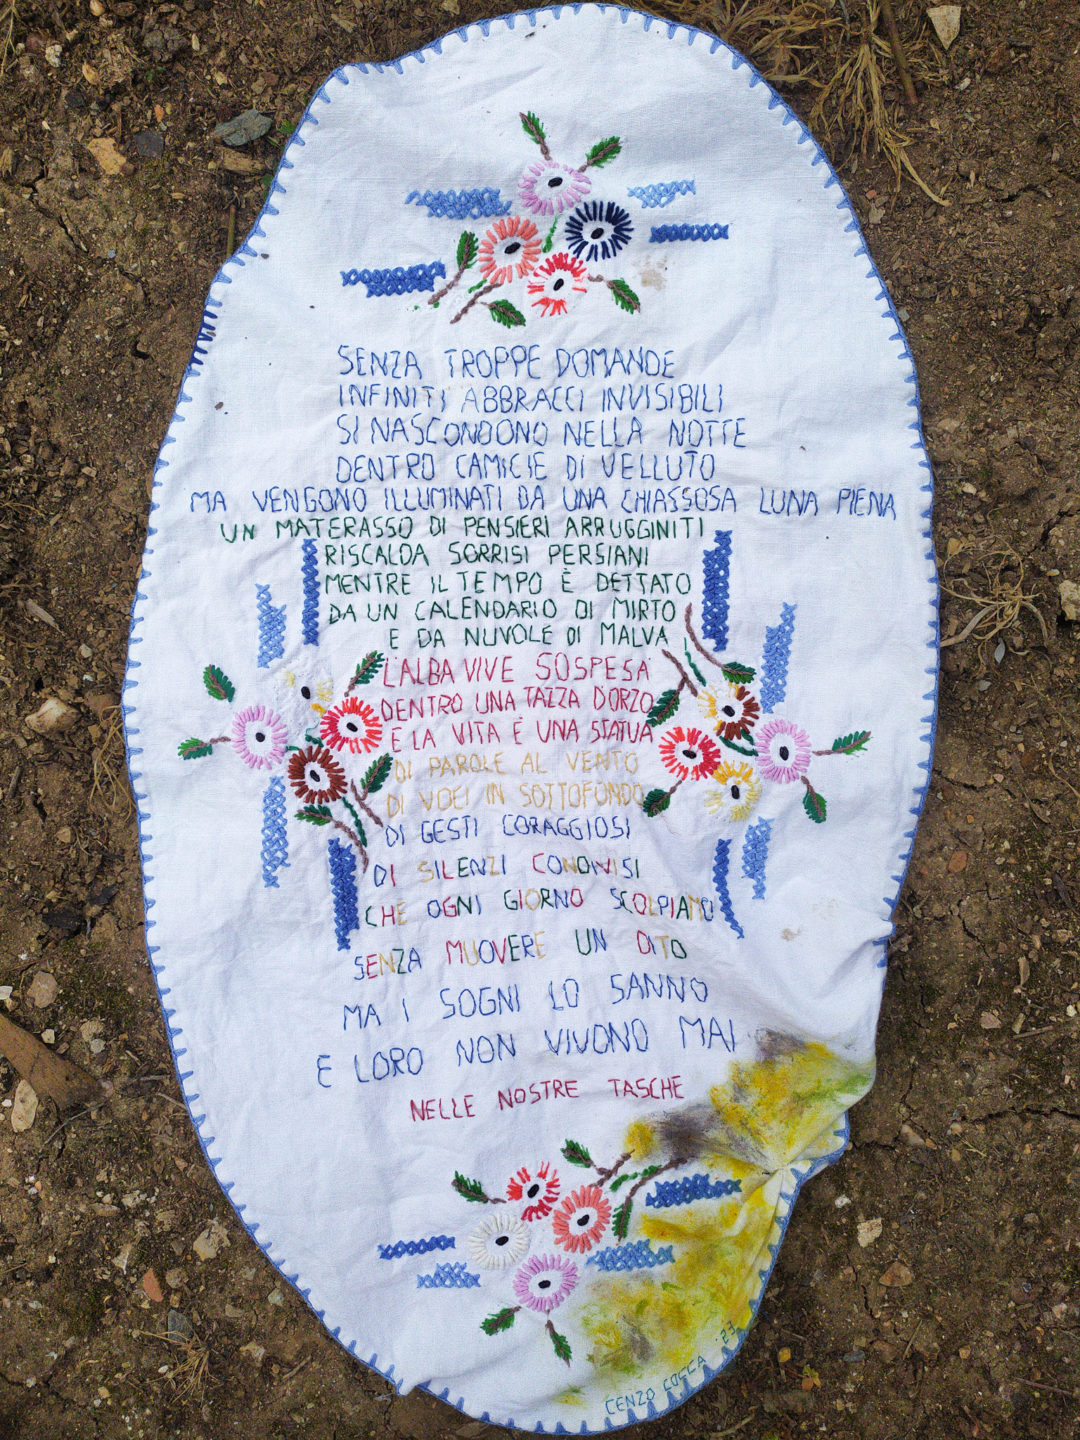 SENZA TROPPE DOMANDE
INFINITI ABBRACCI INVISIBILI
SI NASCONDONO NELLA NOTTE
DENTRO CAMICIE DI VELLUTO
MA VENGONO ILLUMINATI DA UNA CHIASSOSA LUNA PIENA
UN MATERASSO DI PENSIERI ARRUGGINITI
RISCALDA SORRISI PERSIANI
MENTRE IL TEMPO È DETTATO
DA UN CALENDARIO DI MIRTO
E DA NUVOLE DI MALVA
L'ALBA VIVE SOSPESA
DENTRO UNA TAZZA D'ORZO
E LA VITA È UNA STATUA
DI PAROLE AL VENTO
DI VOCI IN SOTTOFONDO
DI GESTI CORAGGIOSI
DI SILENZI CONDIVISI
CHE OGNI GIORNO SCOLPIAMO
SENZA MUOVERE UN DITO
MA I SOGNI LO SANNO
E LORO NON VIVONO MAI
NELLE NOSTRE TASCHE
CENZO COCCA '23